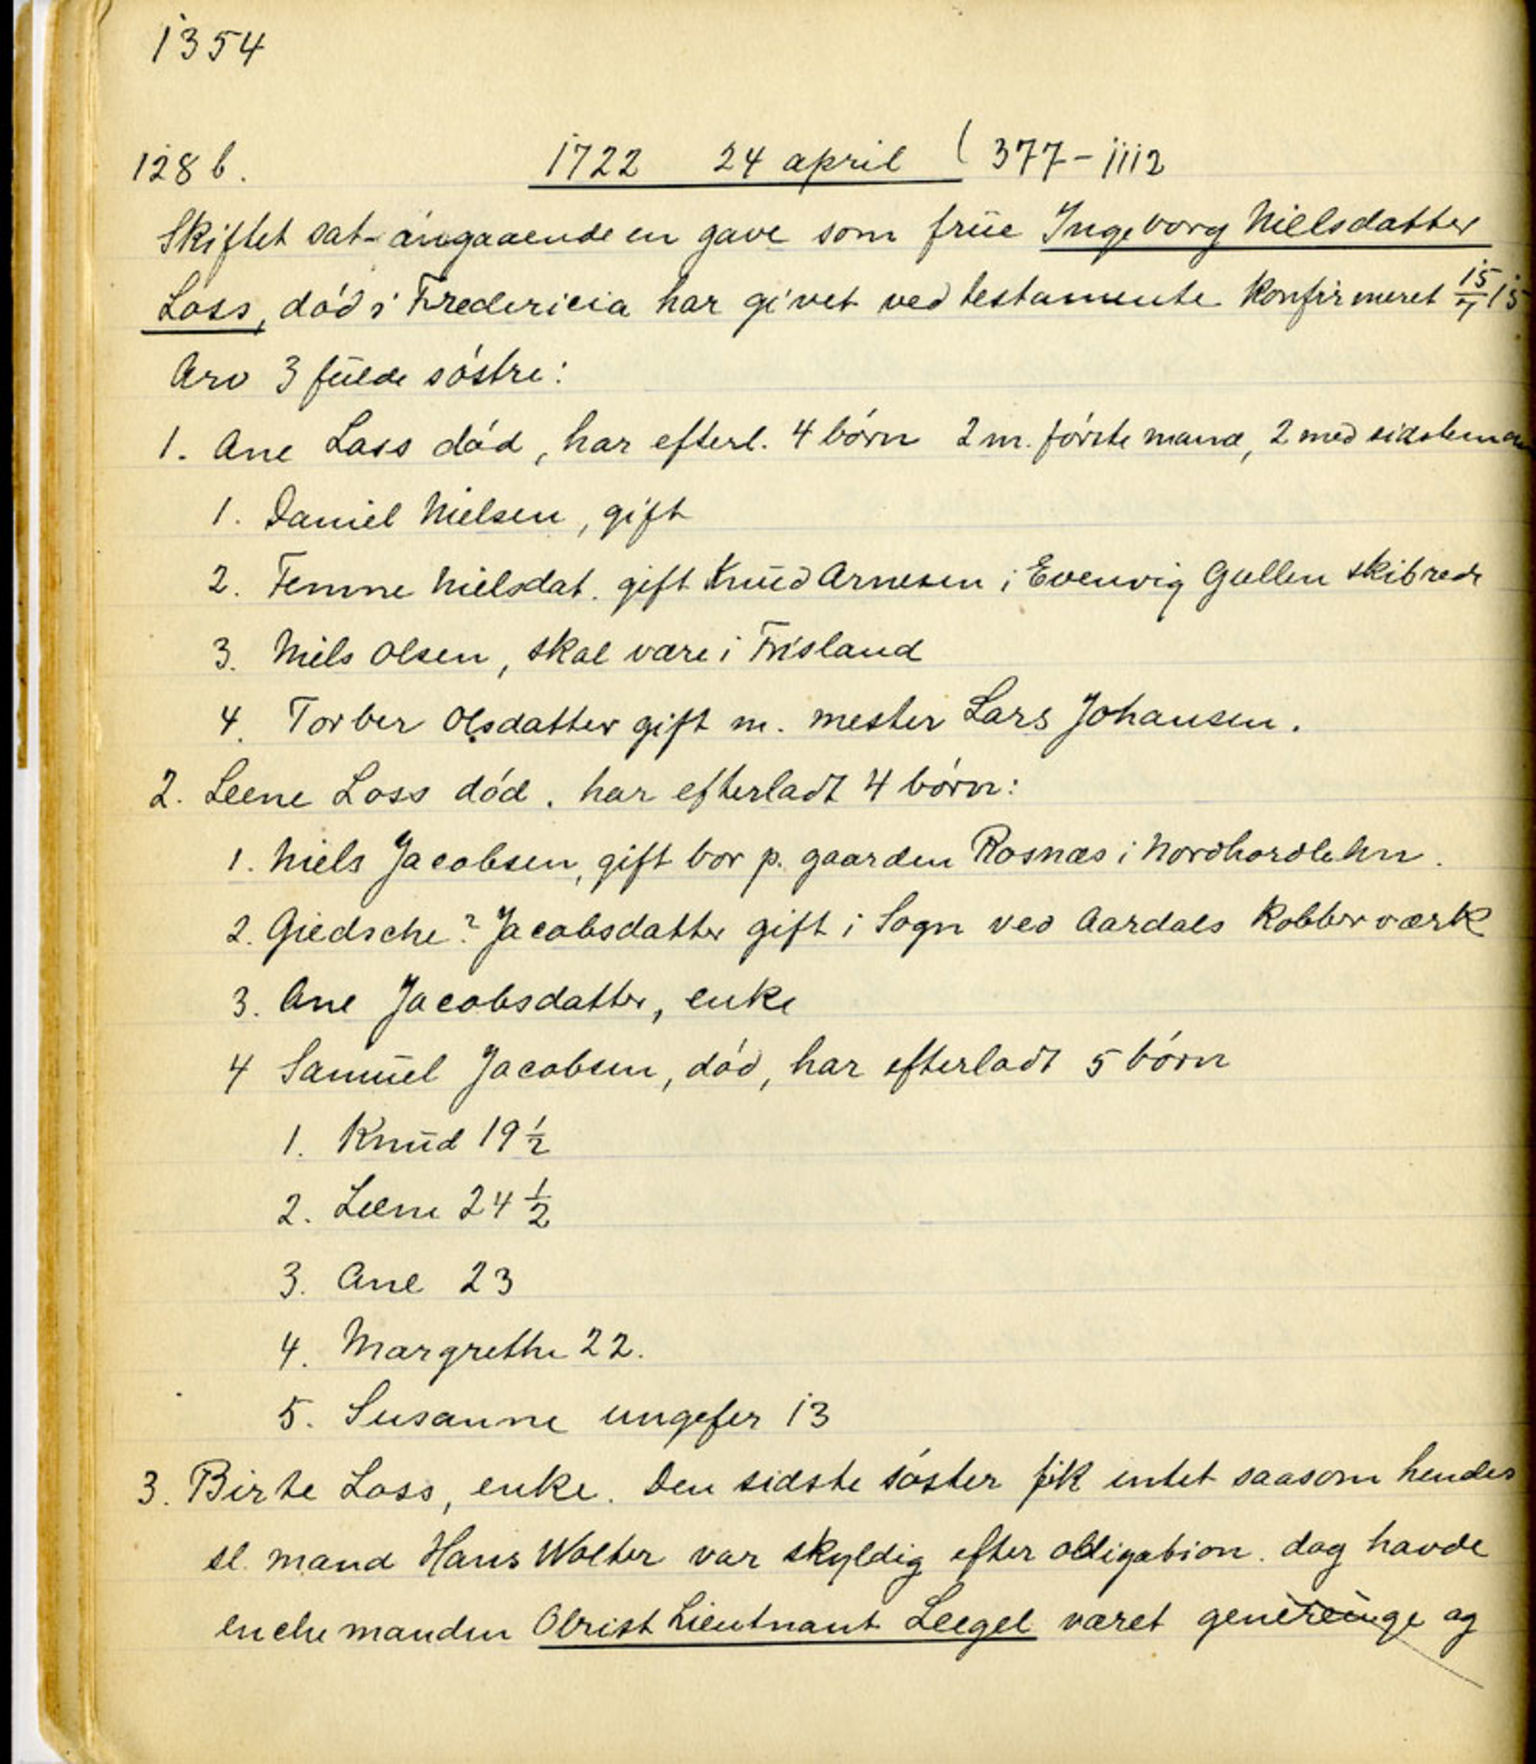 1354
128 b. 1722 24 april ( 377-1112
Skiftet sat angaaende en gave som früe Ingeborg Nielsdatter
Loss, död i Fredericia har givet ved testamente konfirmeret 15/7 15
Arv 3 fülde söstre:
1. Ane Loss död, har efterl. 4 börn 2 m. förstemand, 2 med sidsteman
1. Daniel Nielsen, gift
2. Femne Nielsdat. gift Knüd Arnesen i Evenvig Gullen skibrede
3. Niels Olsen, skal være i Frisland
4. Torber Olsdatter gift m. mester Lars Johansen.
2. Leene Loss död. har efterladt 4 börn:
1. Niels Jacobsen, gift bor p. gaarden Rosnæs i Nordhordlehn.
2. Giedsche? Jacobsdatter gift i Sogn ved Aardals Kobberværk
3. Ane Jacobsdatter, enke
4 Samüel Jacobsen, död, har efterladt 5 börn
1. Knüd 19 1/2
2. Leene 24 1/2
3. Ane 23
4. Margrethe 22.
5. Susanne ungefer 13
3. Birte Loss, enke. Den sidste söster fik intet saasom hendes
sl. mand Hans Wolter var skyldig efter obligation. dog havde
enchemanden Obrist Lieutnant Leegel været og